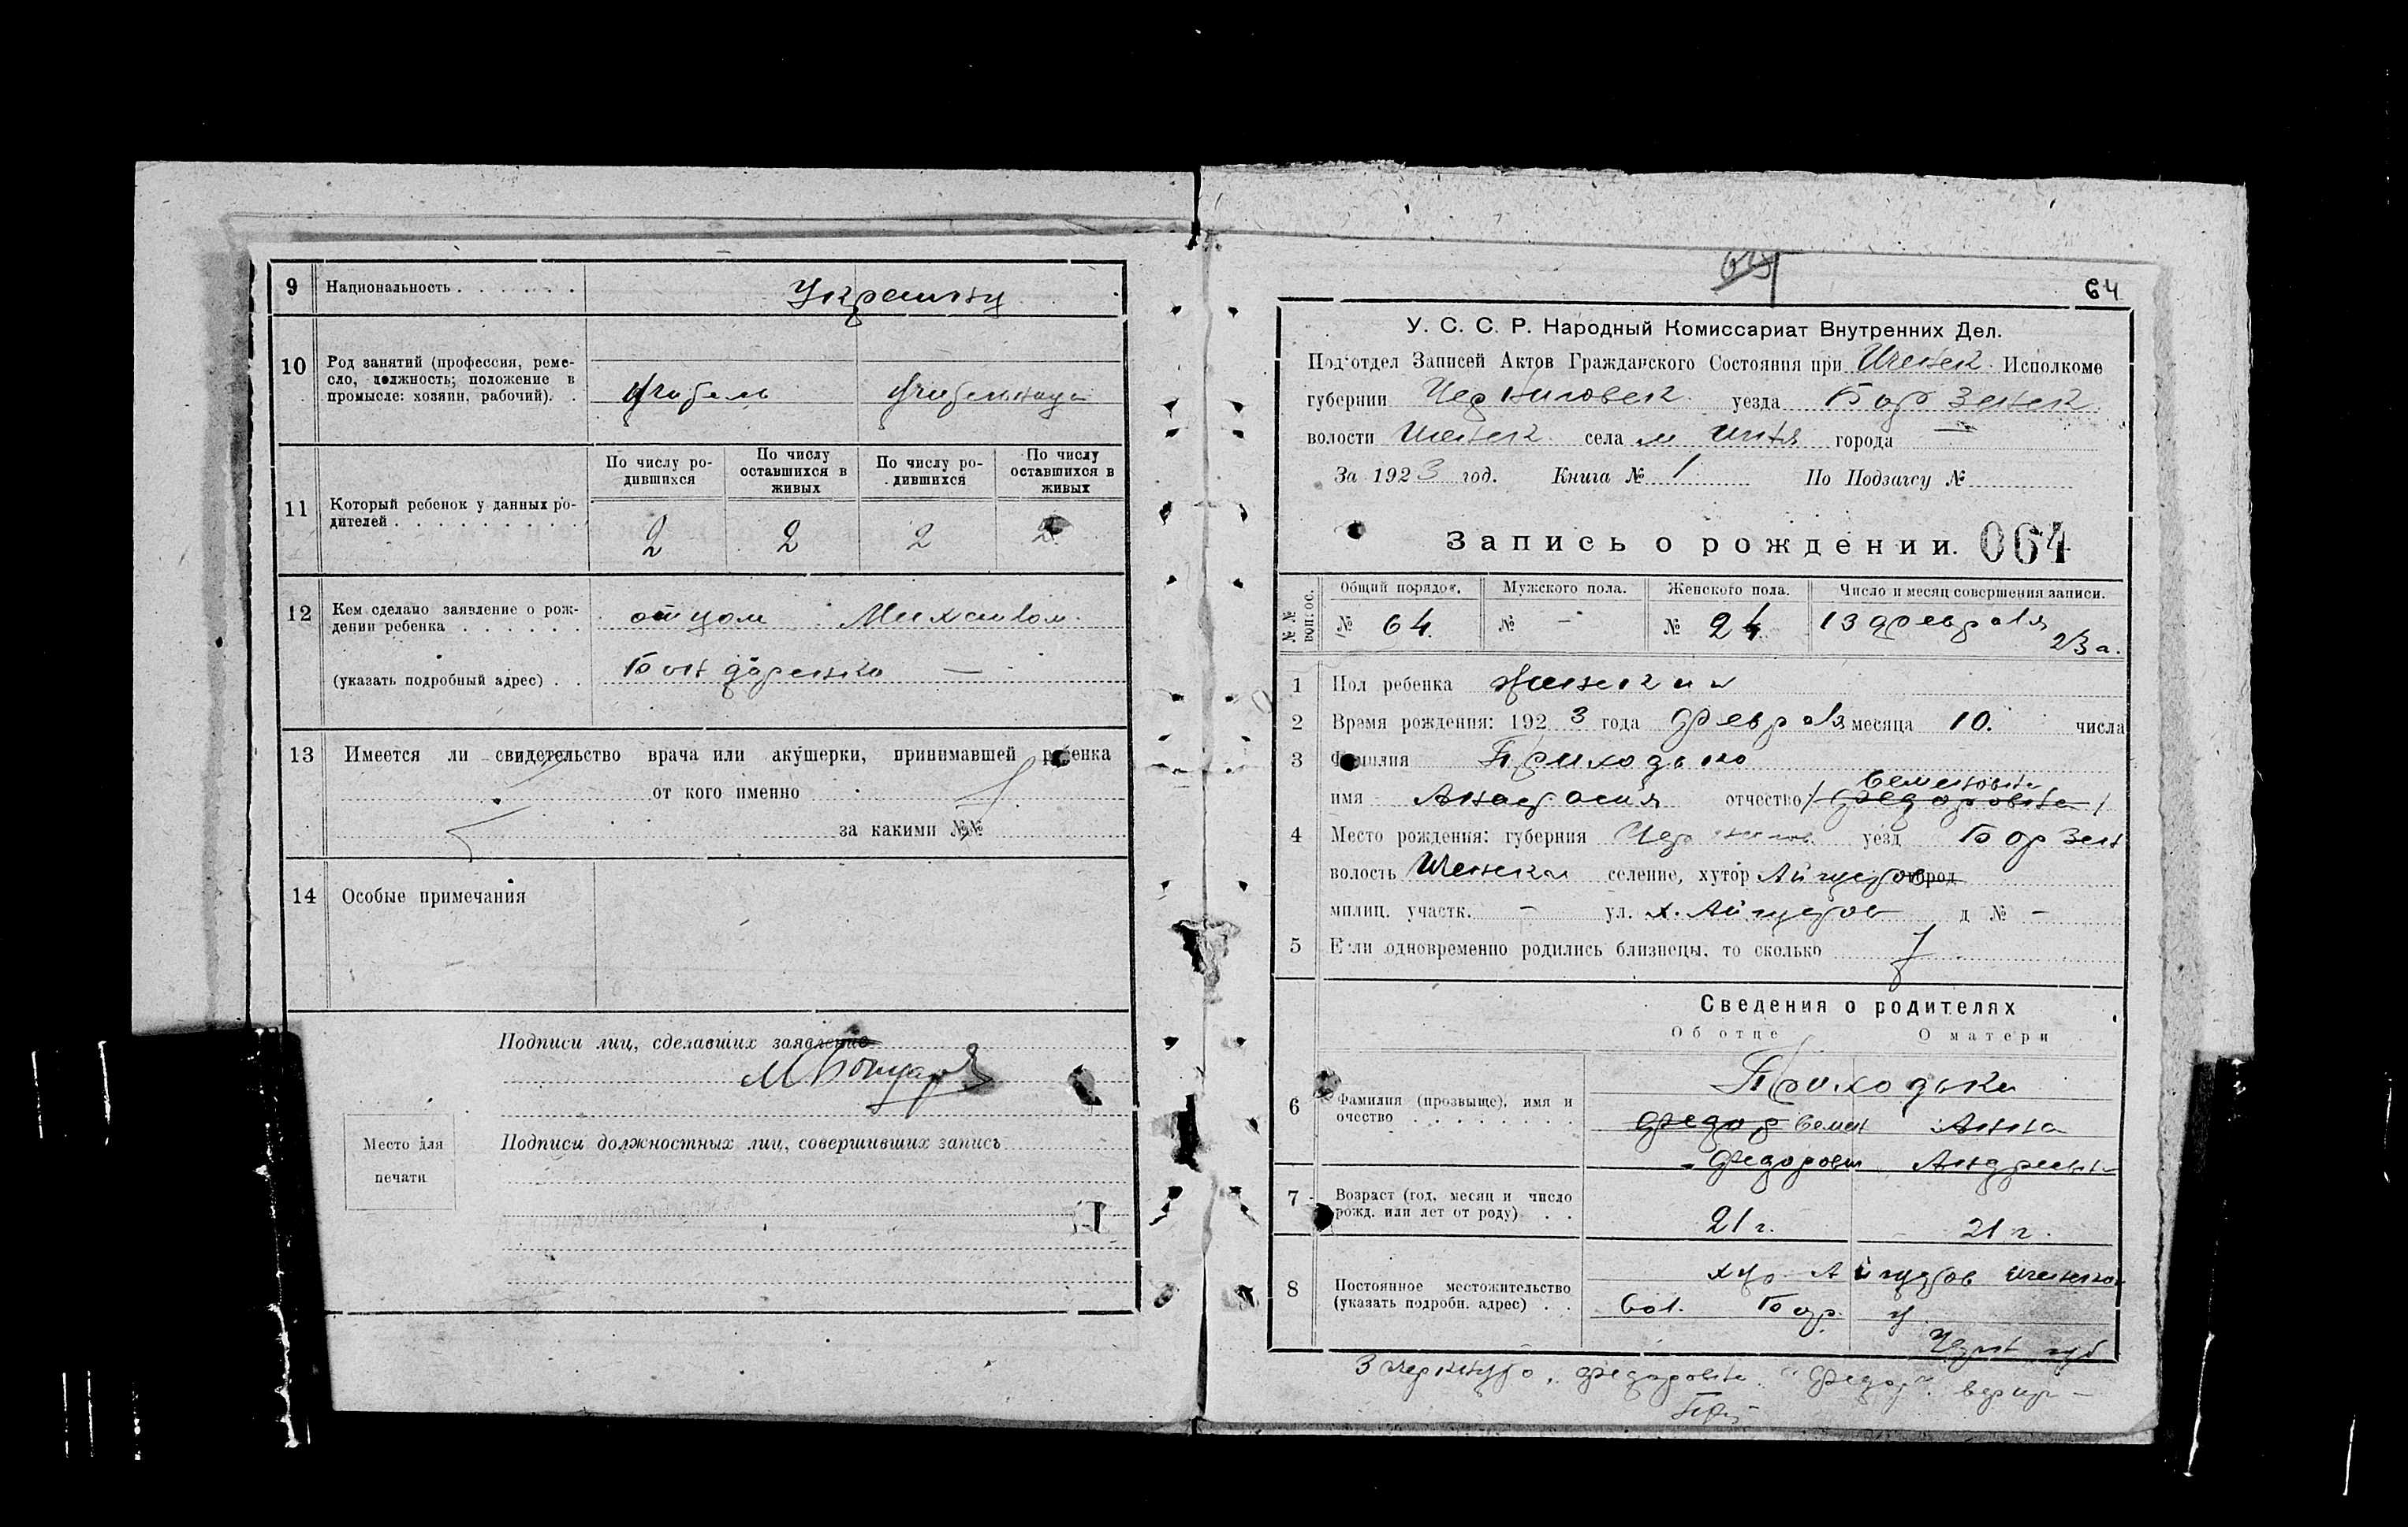 9 Национальность . . . . . . . Украинцы
10 Род занятий (профессия, реме-
сло, должность; положение в
промысле: хозяин, рабочий). . Учитель Учительница
11 Который ребенок у данных ро-
дителей . . . . . . . . . .
По числу ро-
дившихся
По числу
оставшихся в
живых
По числу ро-
дившихся
По числу
оставшихся в
живых
2 2 2 2
12 Кем сделано заявление о рож-
дении ребенка . . . . . . отцом Михаилом
(указать подробный адрес) . . Бондаренко —
13 Имеется ли свидетельство врача или акушерки, принимавшей ребенка
от кого именно
за какими №№
14 Особые примечания
Подписи лиц, сделавших заявление
Подписи должностных лиц, совершивших запись
Место для
печати
64
У. С. С. Р. Народный Комиссариат Внутренних Дел.
Под'отдел Записей Актов Гражданского Состояния при Иченск. Исполкоме
губернии Черниговск. уезда Борзенск
волости Иченск села м Ичня города —
За 1923 год. Книга № 1 По Подзагсу №
Запись о рождении. 064
№№ вопрос. Общий порядок. Мужского пола. Женского пола. Число и месяц совершения записи.
№ 64. № - № 24 13 февраля
23 г.
1 Пол ребенка женский
2 Время рождения: 1923 года февраля месяца 10. числа
3 Фамилия Приходько
Семеновна
имя Анастасия отчество Федоровна
4 Место рождения: губерния Чернигов. уезд Борзен
волость Иченская селение, хутор город
милиц. участк. - ул. х. д № -
5 Если одновременно родились близнецы, то сколько
Сведения о родителях
Об отце О матери
6 Фамилия (прозвище), имя и
очество . . . . . . . . .
Приходьки
Федор Семен Анна
Федорович Андреевн
7 Возраст (год, месяц и число
рожд. или лет от роду) . . 21 г. 21 г.
8 Постоянное местожительство
(указать подробн. адрес) . .
хут. Иченской
вол. Бор. у.
Черн губ
Зачеркнуто „Федоровна" „Федор" верить